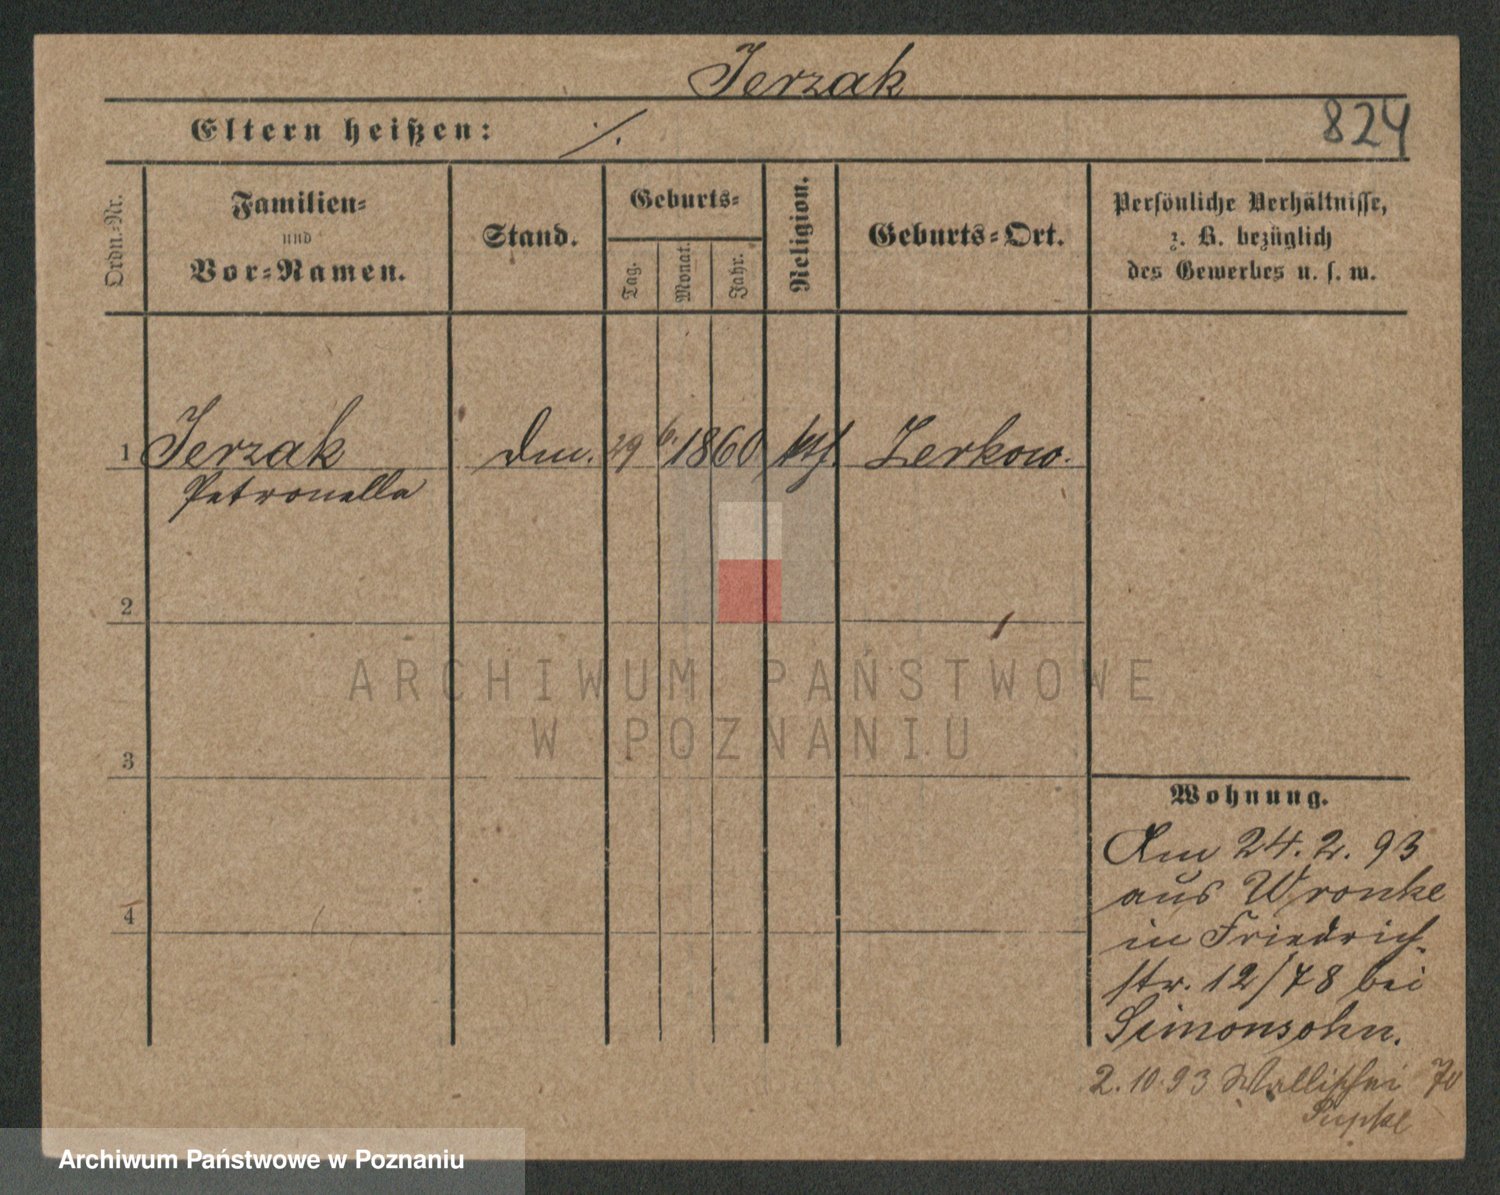 Jerzak
824
Eltern heißen: ./.
Ordn.-Nr.
Familien-
und
Vor-Namen.
Stand.
Geburts-
Tag.
Monat.
Jahr.
Religion.
Geburts-Ort.
Persönliche Verhältnisse,
z. B. bezüglich
des Gewerbes u. s. w.
1 Jerzak 29 6. 1860 kth. Zerkow.
Petronella
2
3
4
Wohnung.
Am 24. 2. 93
aus Wronke
in Friedrich-
str. 12/78 bei
Simonsohn.
2. 10. 93 Wallischei 70
ARCHIWUM PAŃSTWOWE
W POZNANIU
Archiwum Państwowe w Poznaniu